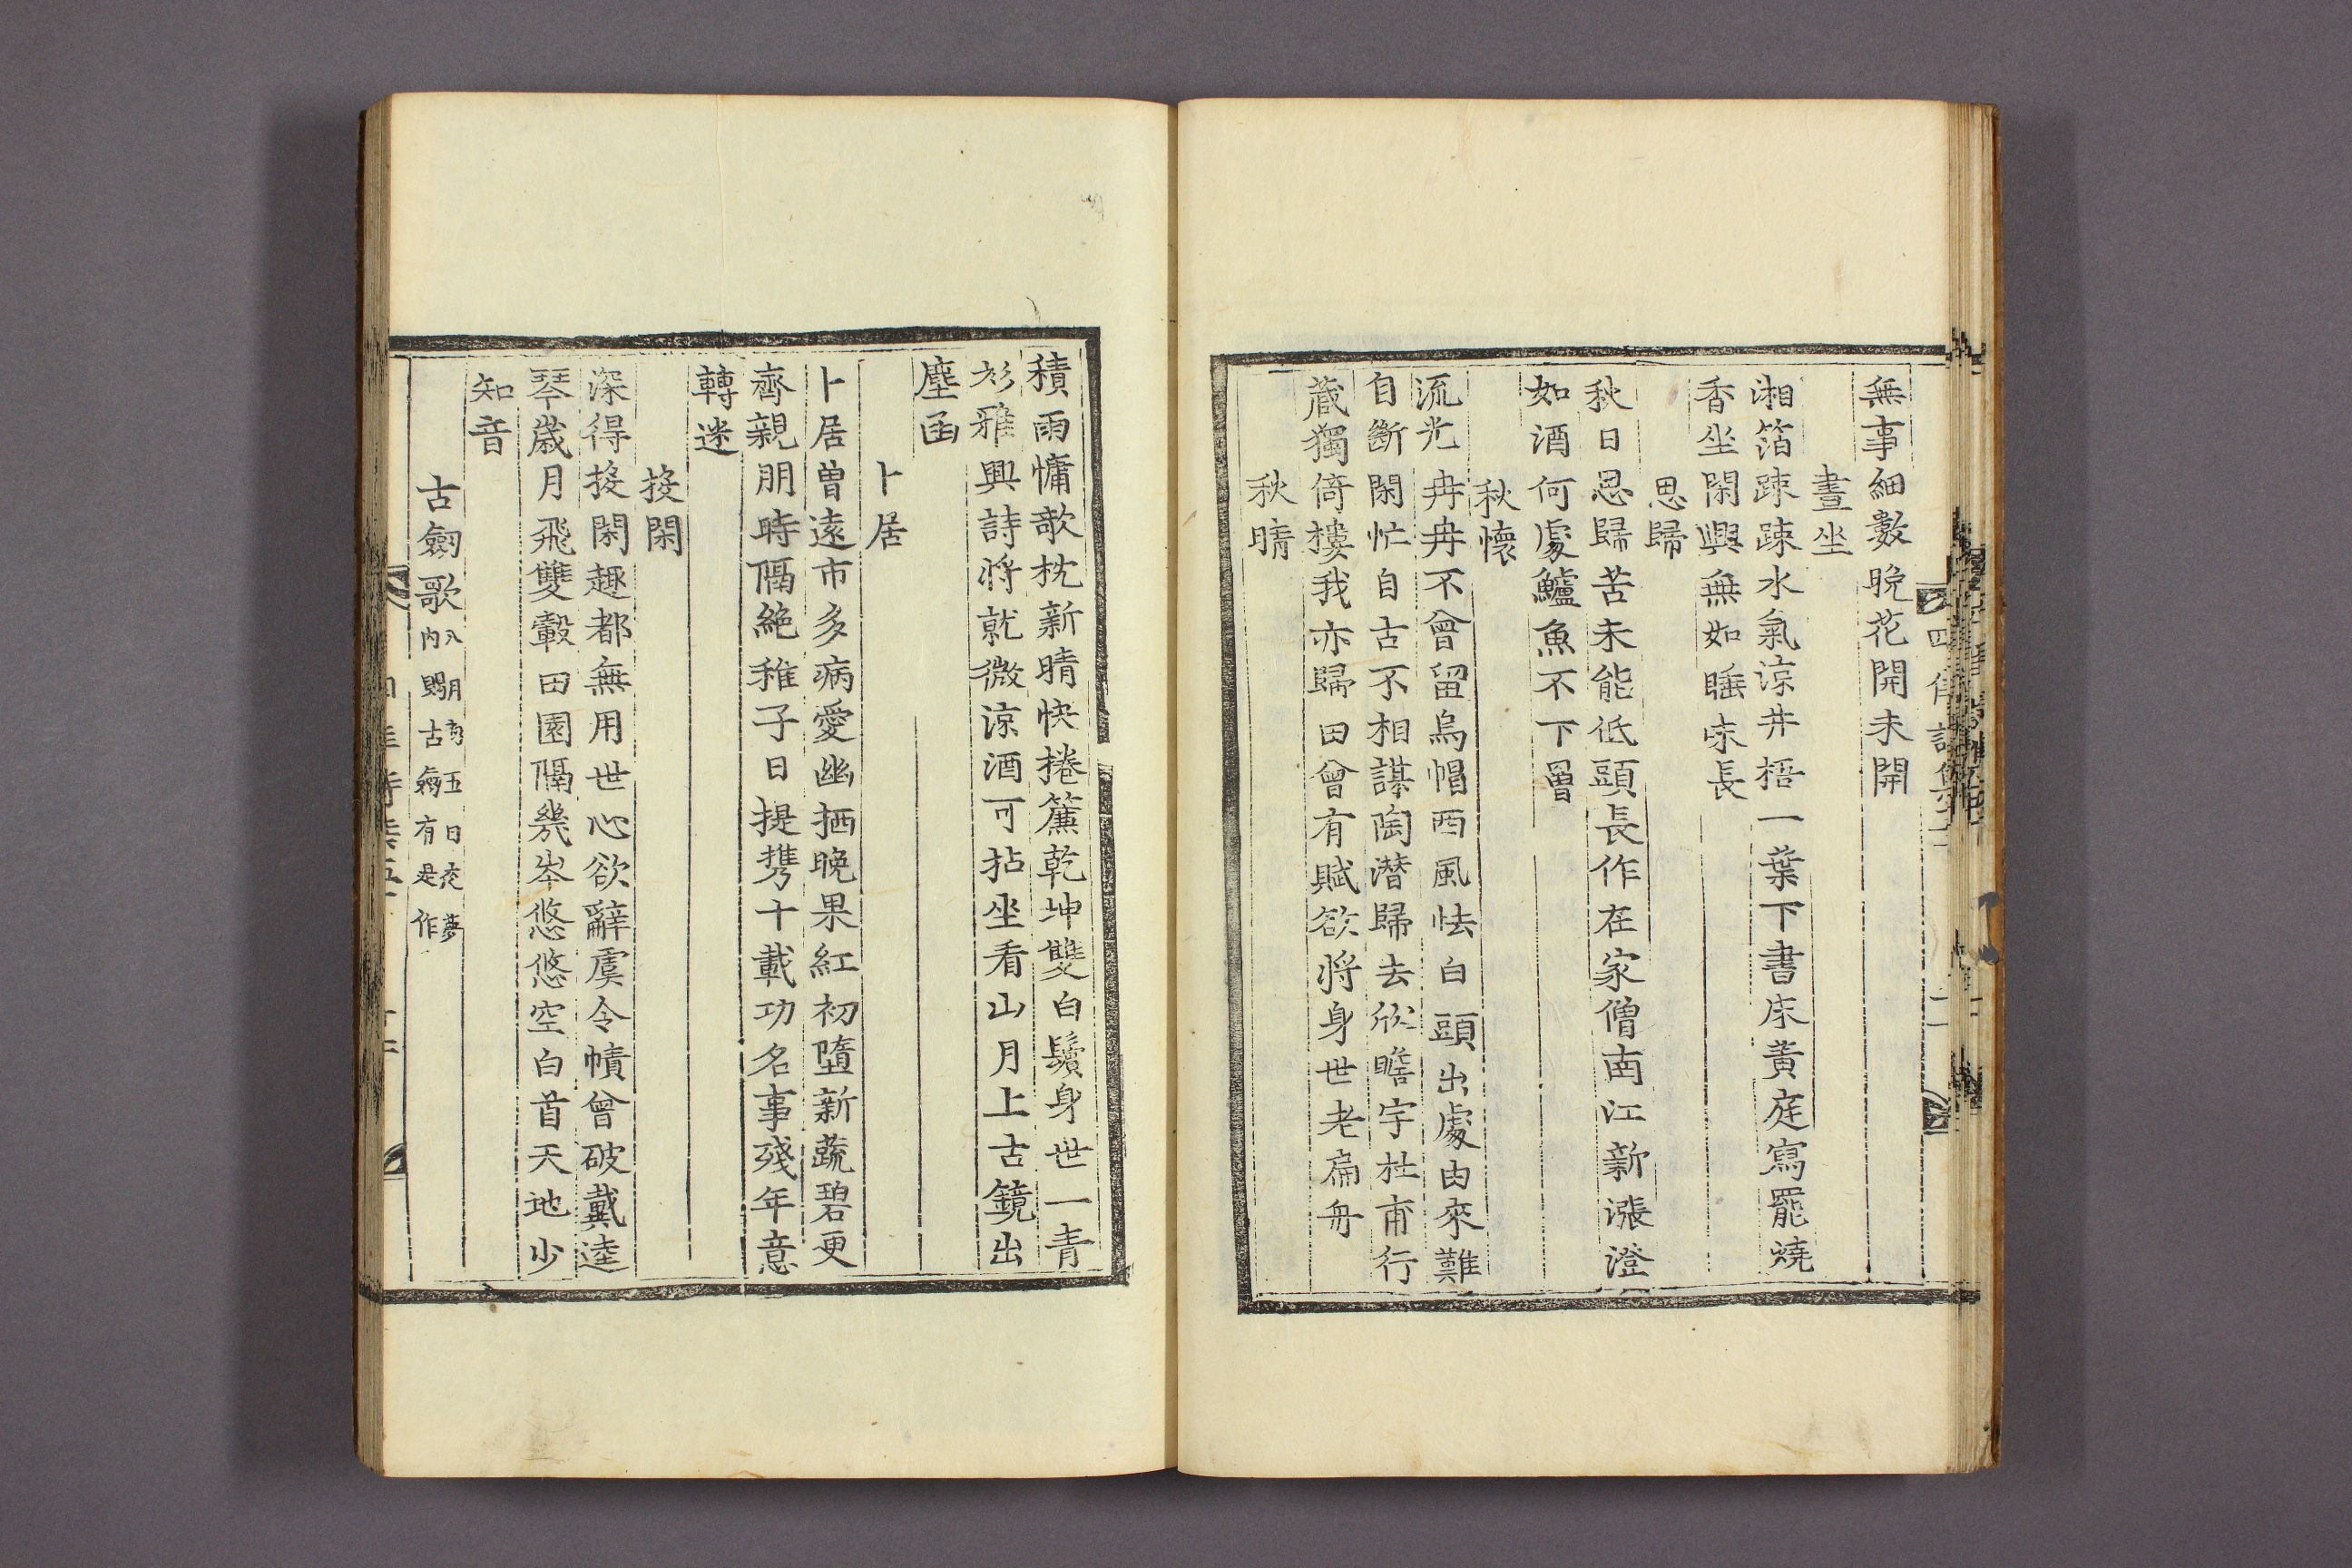 無事細數晚花開未開
晝坐
湘箔踈踈水氣涼井梧一葉下書床黃庭寫罷燒
香坐閑興無如睡味長
思歸
秋日思歸苦未能低頭長作在家僧南江新漲澄
如酒何處鱸魚不下罾
秋懷
流光冉冉不曾留烏帽西風怯白頭出處由來難
自斷閑忙自古不相謀陶潛歸去欣瞻宇杜甫行
蔵獨倚樓我亦歸田曾有賦欲將身世老扁舟
秋晴
積雨慵欹枕新晴快捲簾乾坤雙白鬢身世一青
衫雅興詩將就微涼酒可拈坐看山月上古鏡出
塵函
卜居
卜居曾遠市多病愛幽栖晚果紅初墮新蔬碧更
齊親朋時隔絶稚子日提携十載功名事殘年意
轉迷
投閑
深得投閑趣都無用世心欲辭虞令幘曾破戴逵
琴歲月飛雙轂田園隔幾岑悠悠空白首天地少
知音
古劒歌
八月初五日夜夢
內賜古劒有是作